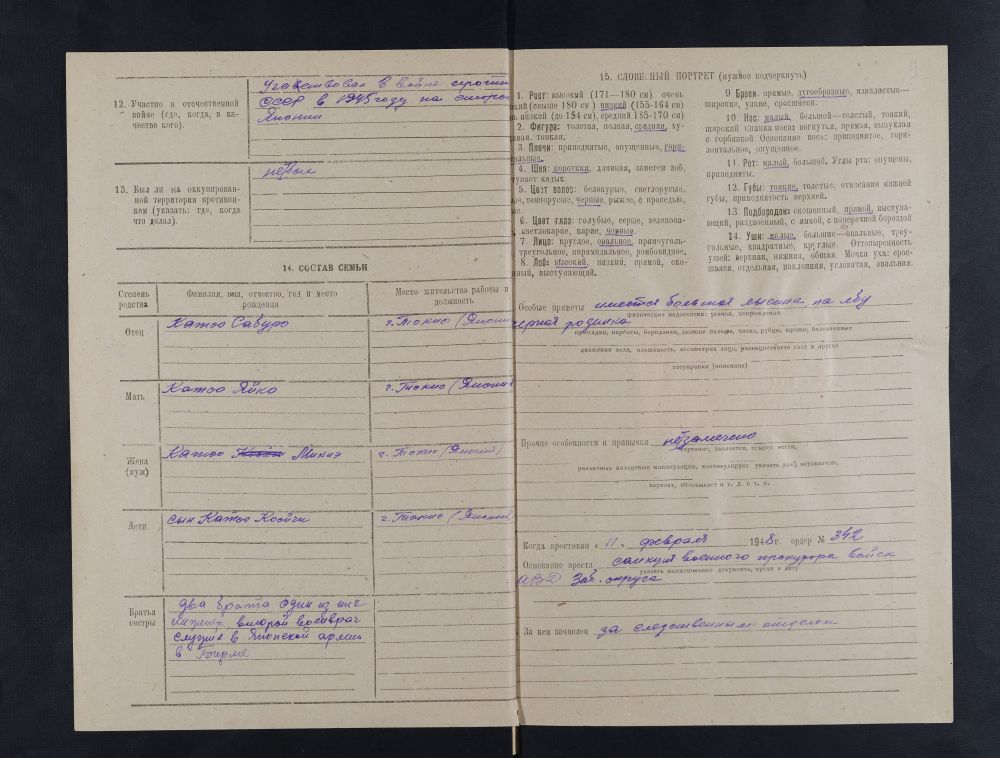 12. Участие в отечественной
войне (где, когда, в ка-
честве кого).
Участвовал в войне против
СССР в 1945 году на стороне
Японии
13. Был ли на оккупирован-
ной территории противни-
ком (указать: где, когда
что делал).
не был
14. СОСТАВ СЕМЬИ
Степень
родства
Фамилия, имя, отчество, год и место
рождения
Место жительства работы и
должность
Отец
Катоо Сабуро
г. Токио (Япони
Мать
Катоо Яйко
г. Токио (Япони
Жена
(муж)
Катоо Микиэ
г. Токио (Япония)
Дети
сын Катоо Коойчи
г. Токио (Япония
Братья
сестры
два брата один из них
инженер, второй военврач
служил в Японской армии
в Бирме
15. СЛОВЕСНЫЙ ПОРТРЕТ (нужное подчеркнуть)
1. Рост: высокий (171—180 см) очень
кий (свыше 180 см) низкий (155-164 см)
нь низкий (до 154 см), средний 165-170 см)
2. Фигура: толстая, полная, средняя, ху-
щавая, тонкая.
3. Плечи: приподнятые, опущенные, гори-
нтальные.
4. Шея: короткая, длинная, заметен зоб,
тупает кадык
5. Цвет волос: белокурые, светлорусые,
ые, темнорусые, черные, рыжие, с проседью,
ые.
6. Цвет глаз: голубые, серые, зеленова-
светлокарие, карие, черные.
7. Лицо: круглое, овальное, прямоуголь-
треугольное, пирамидальное, ромбовидное.
8. Лоб: высокий, низкий, прямой, ско-
нный, выступающий.
9 Брови: прямые, дугообразные, извилистые—
широкие, узкие, сросшиеся.
10. Нос: малый, большой—толстый, тонкий,
широкий Спинка носа: вогнутая, прямая, выпуклая
с горбинкой Основание носа: приподнятое, гори-
зонтальное, опущенное.
11. Рот: малый, большой. Углы рта: опущены,
приподняты.
12. Губы: тонкие, толстые, отвисание нижней
губы, приподнятость верхней.
13. Подбородок: скошенный, прямой, выступа-
ющий, раздвоенный, с ямкой, с поперечной бороздой
14. Уши: малые, большие—овальные, треу-
гольные, квадратные, круглые. Оттопыренность
ушей: верхняя, нижняя, общая. Мочка уха: срос-
шаяся, отдельная, наклонная, угловатая, овальная.
Особые приметы имеется большая лысина, на лбу
физические недостатки: увечья, повреждения
черная родинка
движения тела, плешивость, ассиметрия лица, разноцветность глаз и другие
татуировка (описание)
Прочие особенности и привычки не замечено
картавит, заикается, грызет ногти,
различные пальцевые манипуляции, жестикулирует указать как), автоматизм,
харкает, сплевывает и т. д. и т. п.
Когда арестован « 11 » февраля 1948 г. ордер № 342
Основание ареста санкция военного прокурора войск
указать наименование документа, орган и дату
МВД Заб. округа
За кем зачислен за следственным отделом